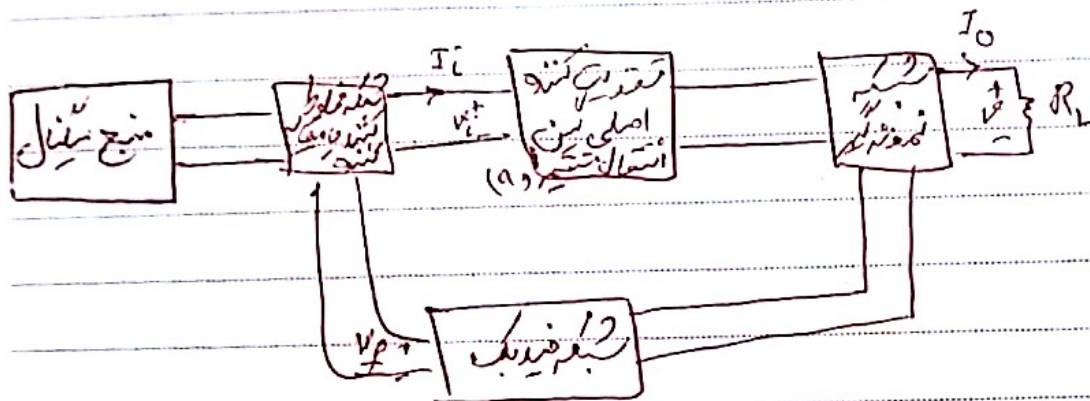 منبع سیگنال
شبکه مخلوط
کننده
کننده
I_i
V_i +
تقویت کننده
اصلی بدون
انتقال
(a)
شبکه
نمونه گیر
I_o
+
V
-
R_L
V_f +
شبکه فیدبک